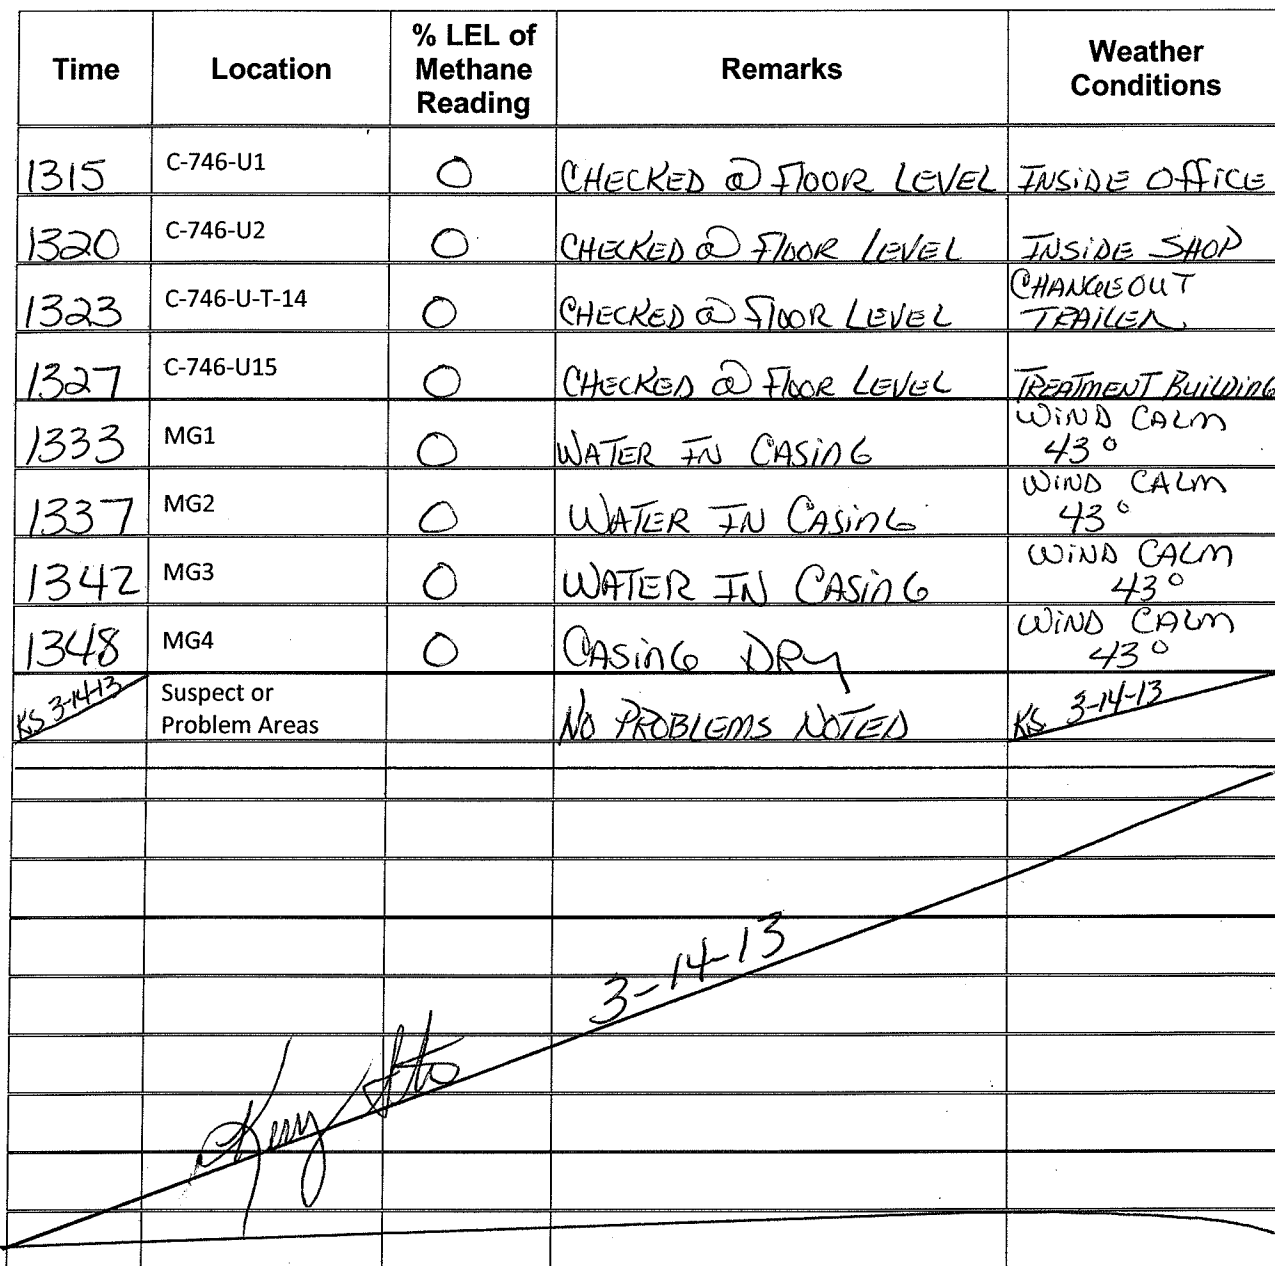 Time Location % LEL of Methane Reading Remarks Weather Conditions
1315 C-746-U1 0 CHECKED @ FLOOR LEVEL INSIDE OFFICE
1320 C-746-U2 0 CHECKED @ FLOOR LEVEL INSIDE SHOP
1323 C-746-U-T-14 0 CHECKED @ FLOOR LEVEL CHANGEOUT TRAILER
1327 C-746-U15 0 CHECKED @ FLOOR LEVEL TREATMENT BUILDING
1333 MG1 0 WATER IN CASING WIND CALM 43°
1337 MG2 0 WATER IN CASING WIND CALM 43°
1342 MG3 0 WATER IN CASING WIND CALM 43°
1348 MG4 0 CASING DRY WIND CALM 43°
KS 3-14-13 Suspect or Problem Areas NO PROBLEMS NOTED KS 3-14-13
3-14-13